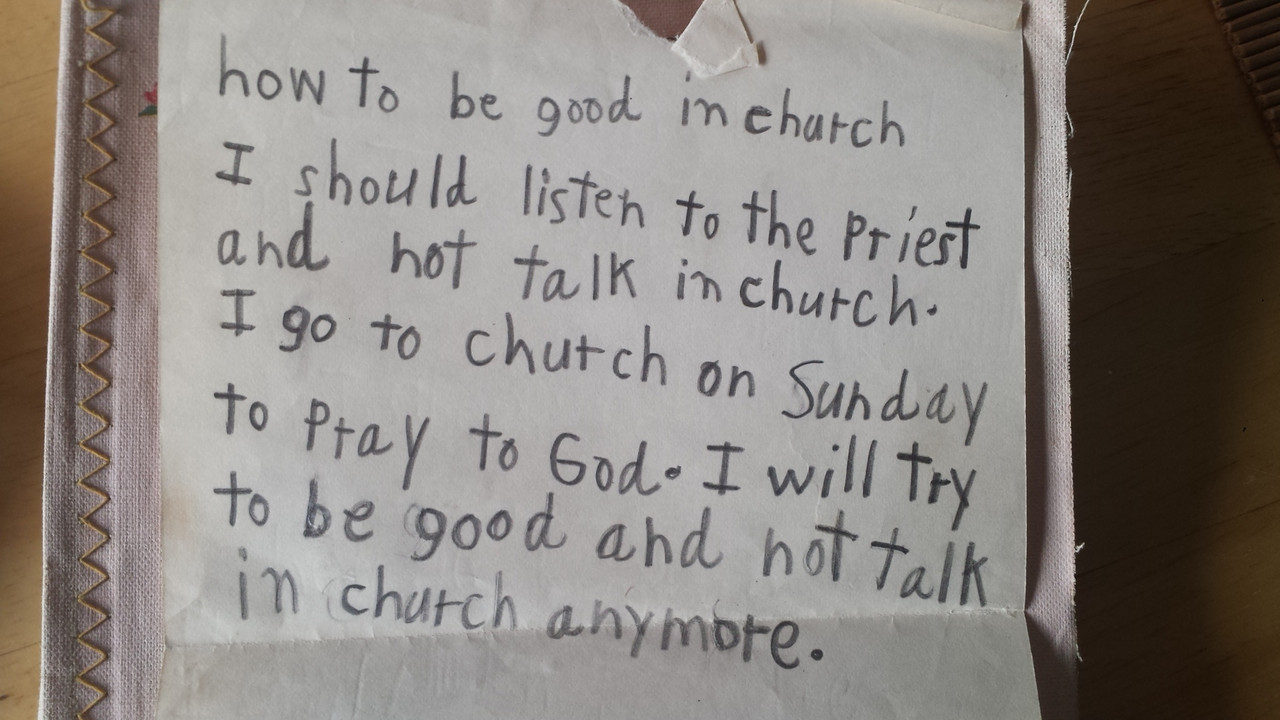 how to be good in church
I should listen to the priest
and not talk in church.
I go to church on Sunday
to pray to God. I will try
to be good and not talk
in church anymore.